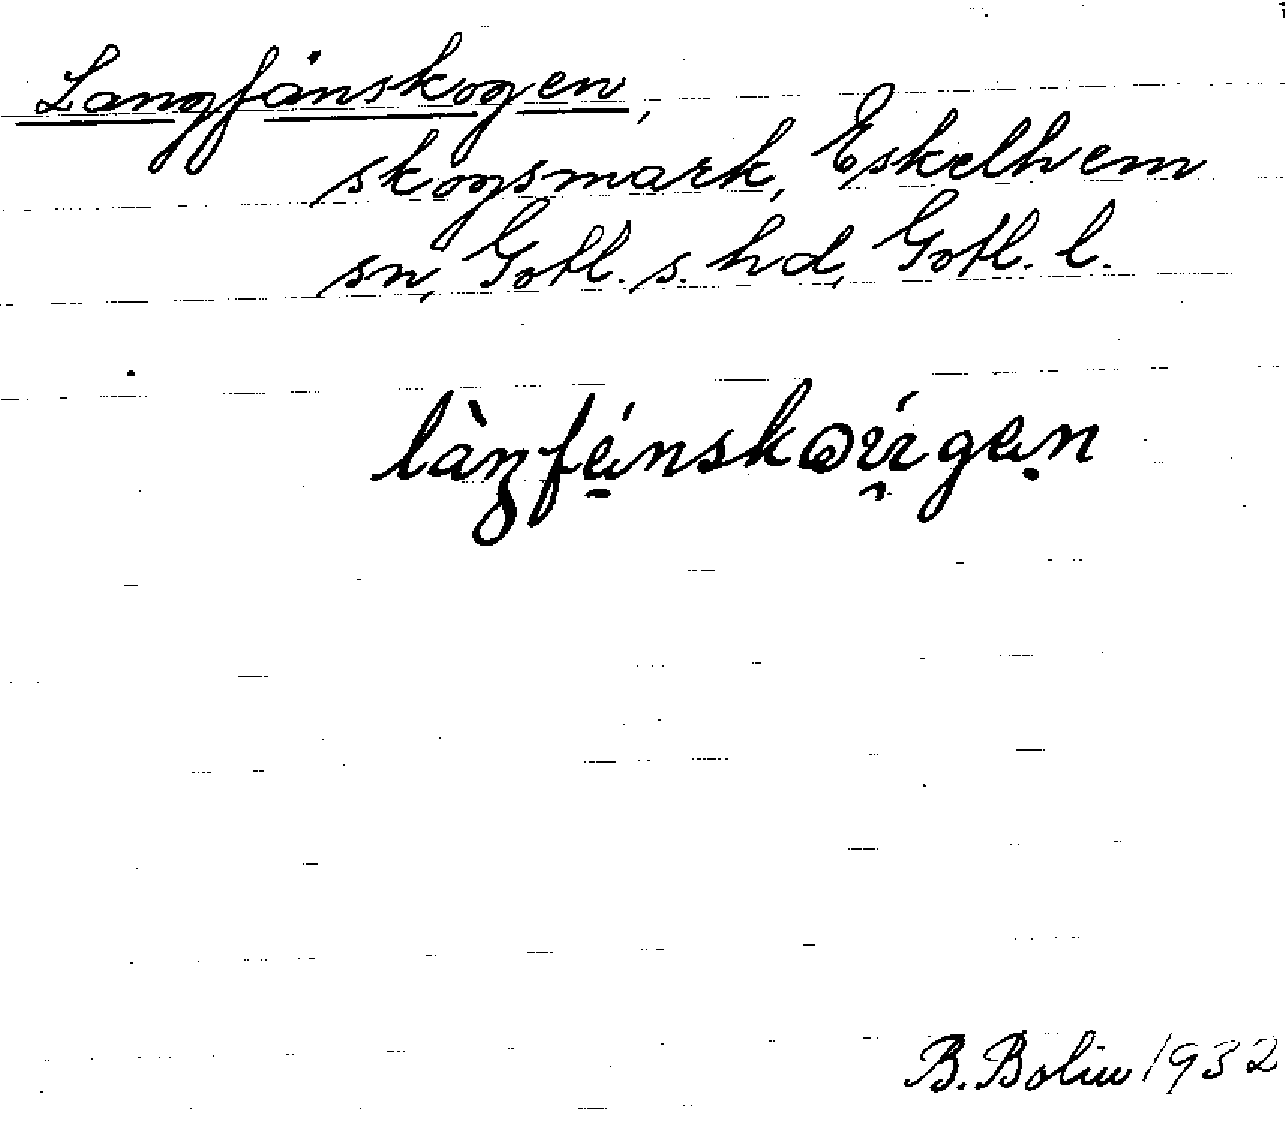 Langfånskogen,
skogsmark, Eskelhem
sn, Gotl. s. hd, Gotl. l.
B. Bolin 1932